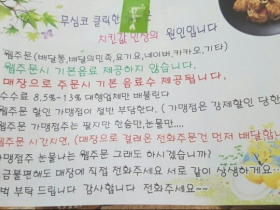 무심코 클릭한
치킨값 인상의 원인입니다
웹주문 (배달통, 배달의민족, 요기요, 네이버, 카카오, 기타)
웹주문시 기본음료 제공하지 않습니다.
매장으로 주문시 기본음료수 제공됩니다.
수수료 8.5%~13% 대행업체만 배불린다
주문 할인 가맹점이 절반 부담한다. (가맹점은 강제할인 당한
웹주문 가맹점주는 팔지만 한숨만, 눈물만....
주문 시간지연, (매장으로 걸려온 전화주문건 먼저 배달합니
가맹점주 눈물나는 웹주문 그래도 하시겠습니까?
금불편해도 매장에 직접 전화주세요 서로 같이 상생하게요...
벅 부탁 드립니다 감사합니다 전화주세요~~